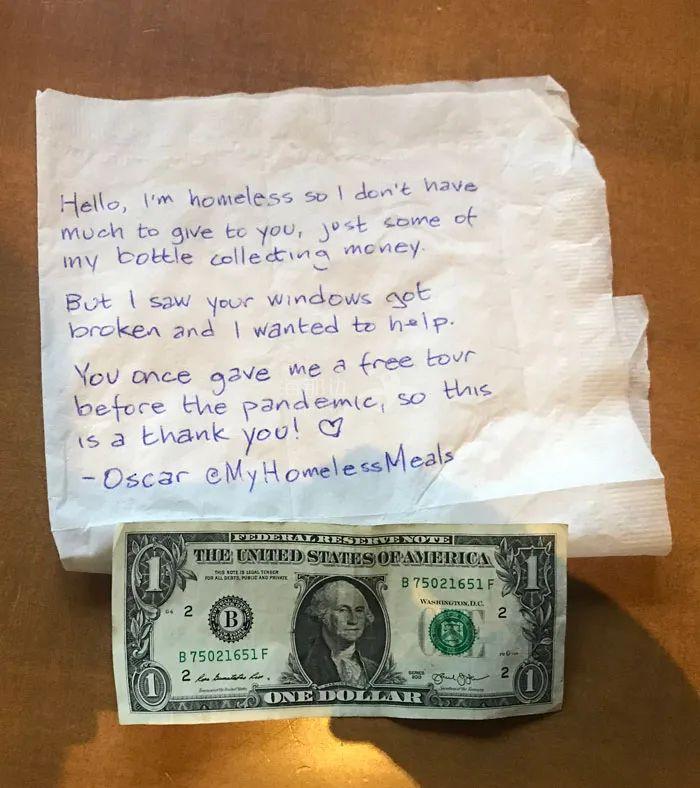 Hello, I'm homeless so I don't have
much to give to you, just some of
my bottle collecting money.
But I saw your windows got
broken and I wanted to help.
You once gave me a free tour
before the pandemic, so this
is a thank you! ♡
-Oscar @MyHomelessMeals
FEDERAL RESERVE NOTE
THE UNITED STATES OF AMERICA
THIS NOTE IS LEGAL TENDER
FOR ALL DEBTS, PUBLIC AND PRIVATE
B 75021651 F
WASHINGTON, D.C.
1
1
2
B
2
B 75021651 F
2
SERIES
2013
2
1
ONE DOLLAR
1